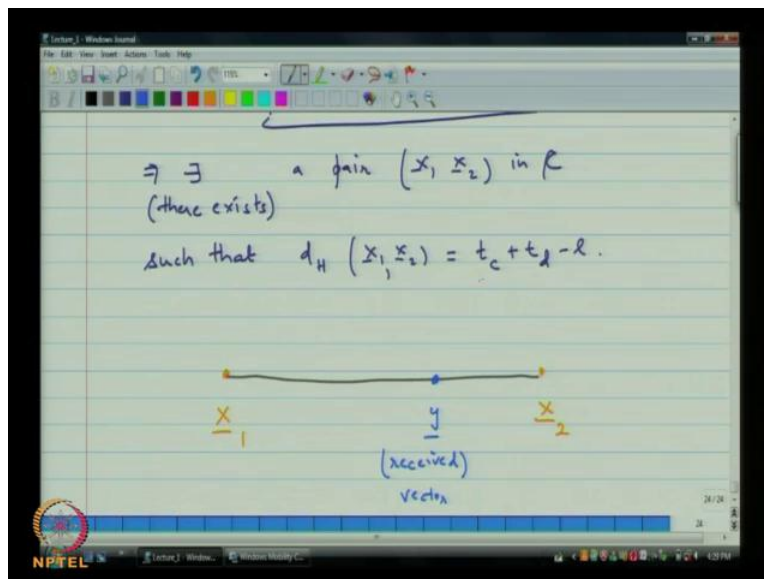 Lecture_1 - Windows Journal
File Edit View Insert Actions Tools Help
⇒ ∃ a pair (x₁ x₂) in C
(there exists)
such that d_H (x₁, x₂) = t_c + t_d - l.
x₁ y x₂
(received)
vector
24/24
24
NPTEL
Lecture_1 - Window...
Windows Mobility C...
4:29 PM